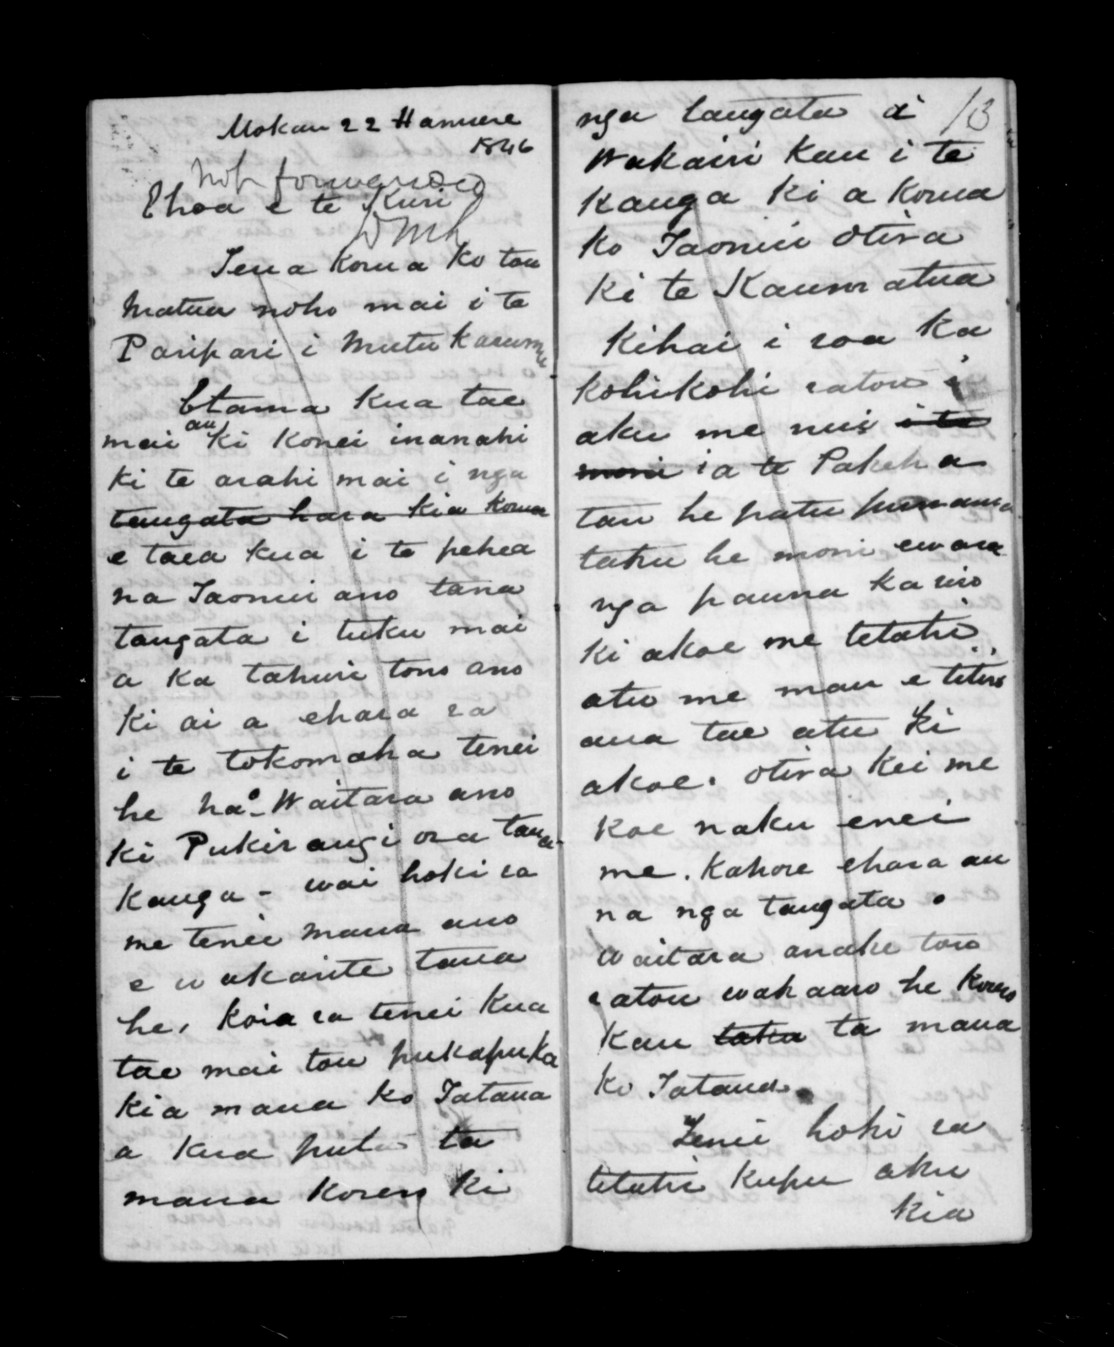 Mokau 22 Hanuere
1846
Not forwarded
Ehoa e te Kuri
DMcL
Tena korua ko tou
Matua noho mai i te
Paripari i Mutukaramu
Etama kua tae
mai au ki konei inanahi
ki te arahi mai i nga
tangata hara kia korua
e taea kua i te pehea
na Taonui ano tana
tangata i tuku mai
a ka tahuri tono ano
ki ai a ehara ra
i te tokomaha tenei
he ha. Waitara ano
ki Pukirangi ora
kanga - wai hoki ra
me tenei maua ano
e wakarite taua
he, koia ra tenei kua
tae mai tou pukapuka
kia maua ko Tatana
a kua puta ta
maua korero ki
13
nga tangata a
Wakairi kau i te
kanga ki a korua
ko Taonui otira
ki te Kaumatua
kihai i roa ka
kohikohi ratou i
aku me nui i te
moni ia te Pakeha
tau he patu
taku he moni ewara
nga pauna ka riro
ki akoe me tetahi
atu me mau e titiro
ana tae atu ki
akoe. otira kei me
koe naku enei
me. Kahore ehara au
na nga tangata o
Waitara anake tono
ratou wakaaro he korero
kau taku ta maua
ko Tatana.
Tenei hoki ra
tetahi kupu aku
kia